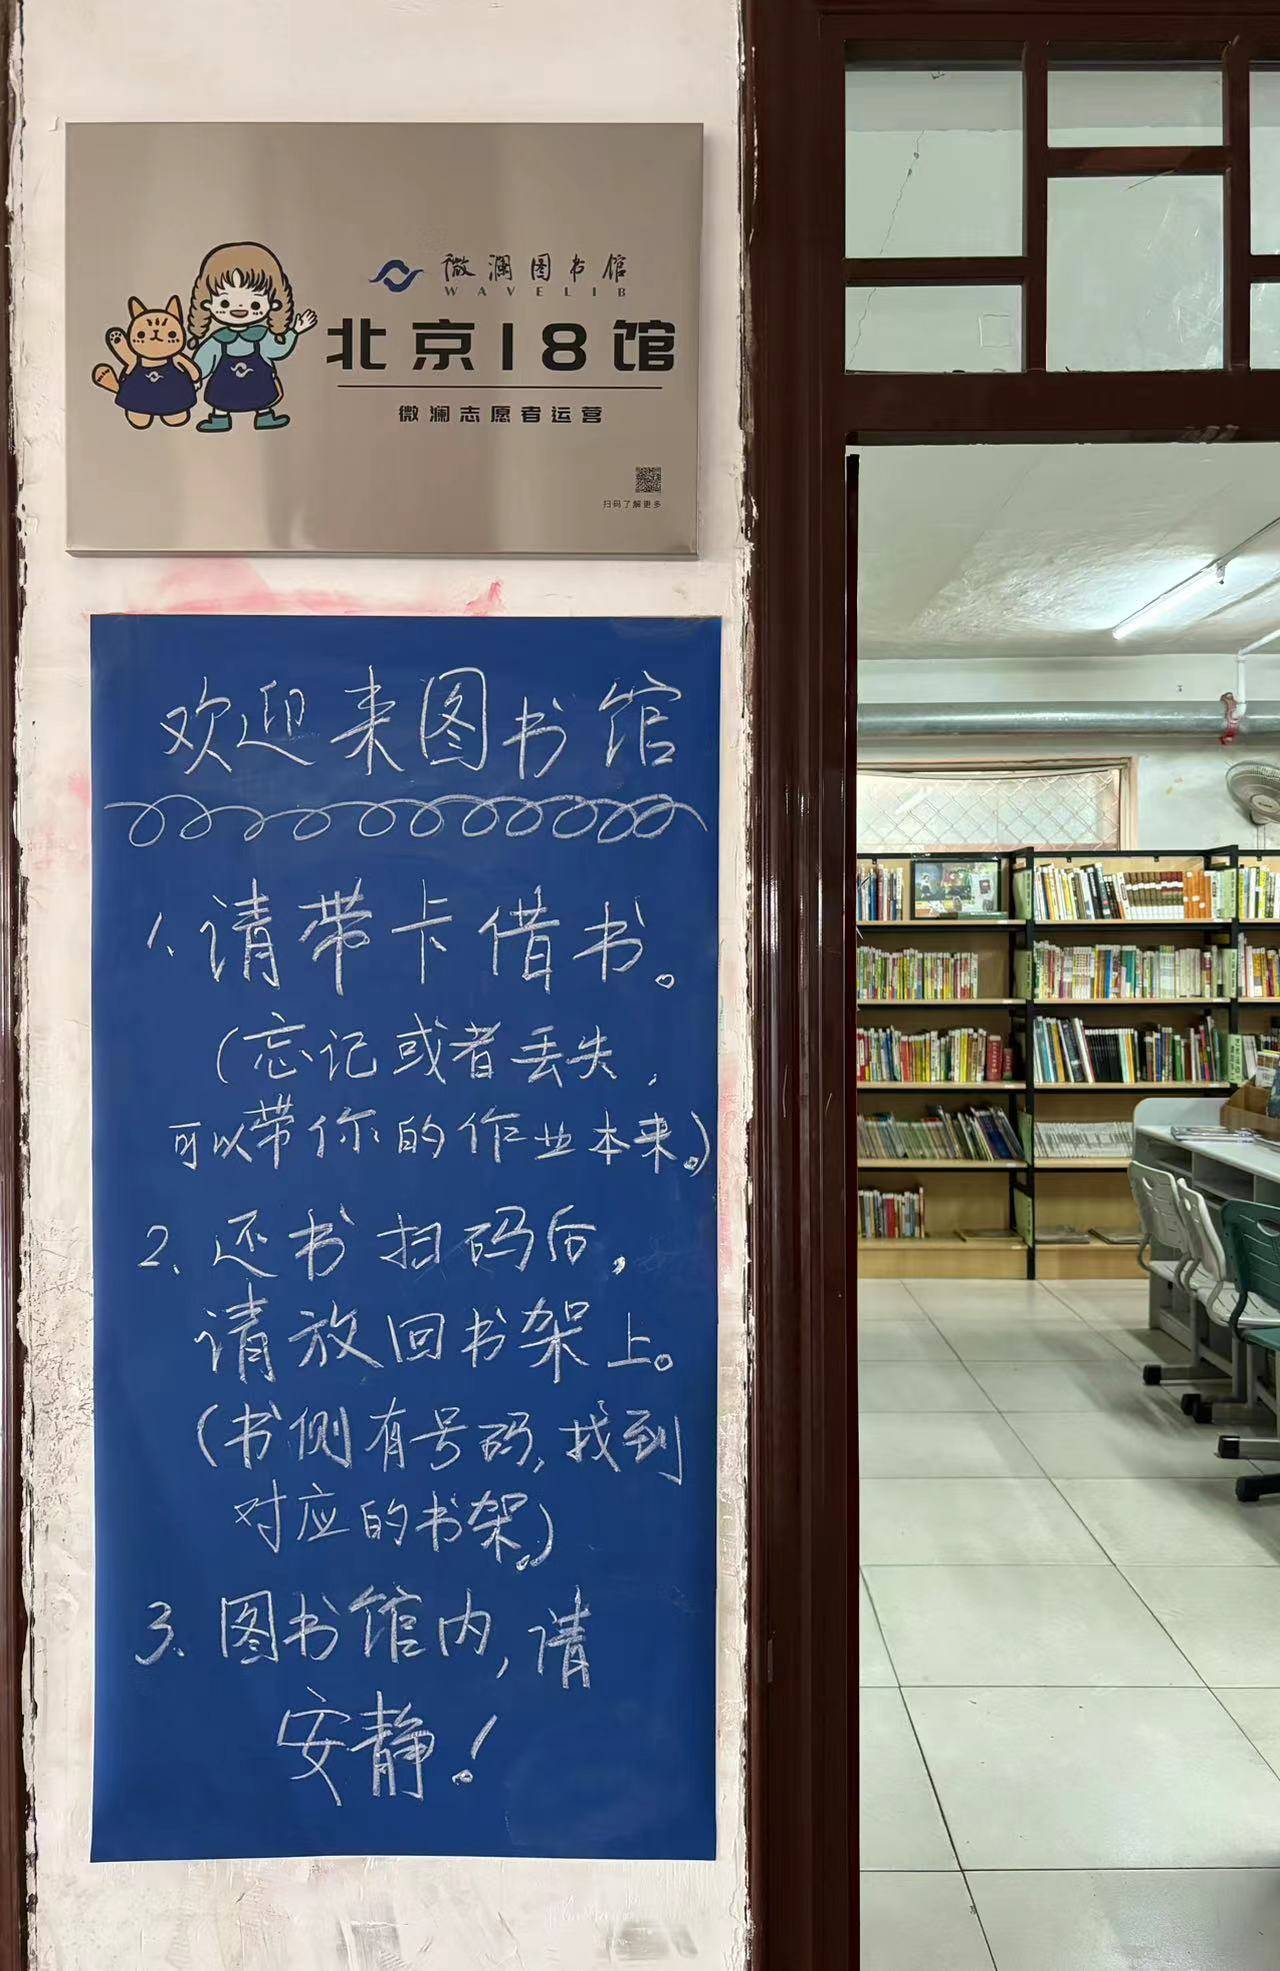 微澜图书馆
WAVELIB
北京18馆
微澜志愿者运营
扫码了解更多
欢迎来图书馆
1. 请带卡借书。
(忘记或者丢失,
可以带你的作业本来。)
2. 还书扫码后,
请放回书架上。
(书侧有号码,找到
对应的书架。)
3. 图书馆内,请
安静!